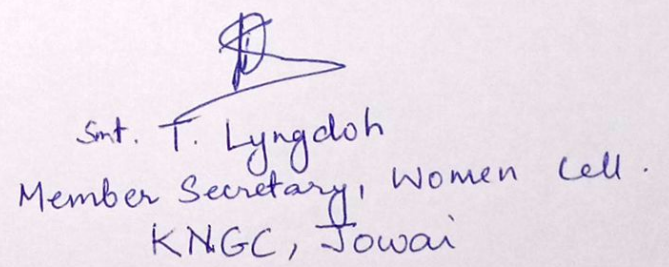 Smt. T. Lyngdoh
Member Secretary, Women Cell.
KNGC, Jowai